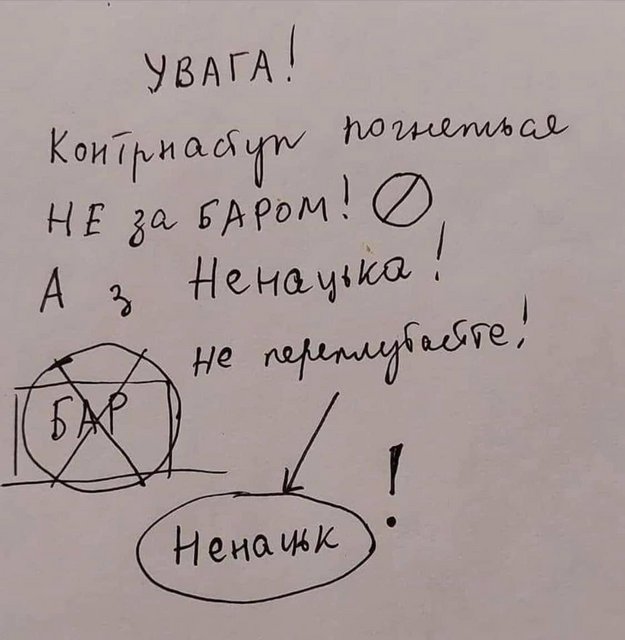 УВАГА!
Контрнаступ почнеться
НЕ за БАРОМ!
А з Ненацька!
не переплутайте!
БАР
Ненацьк!